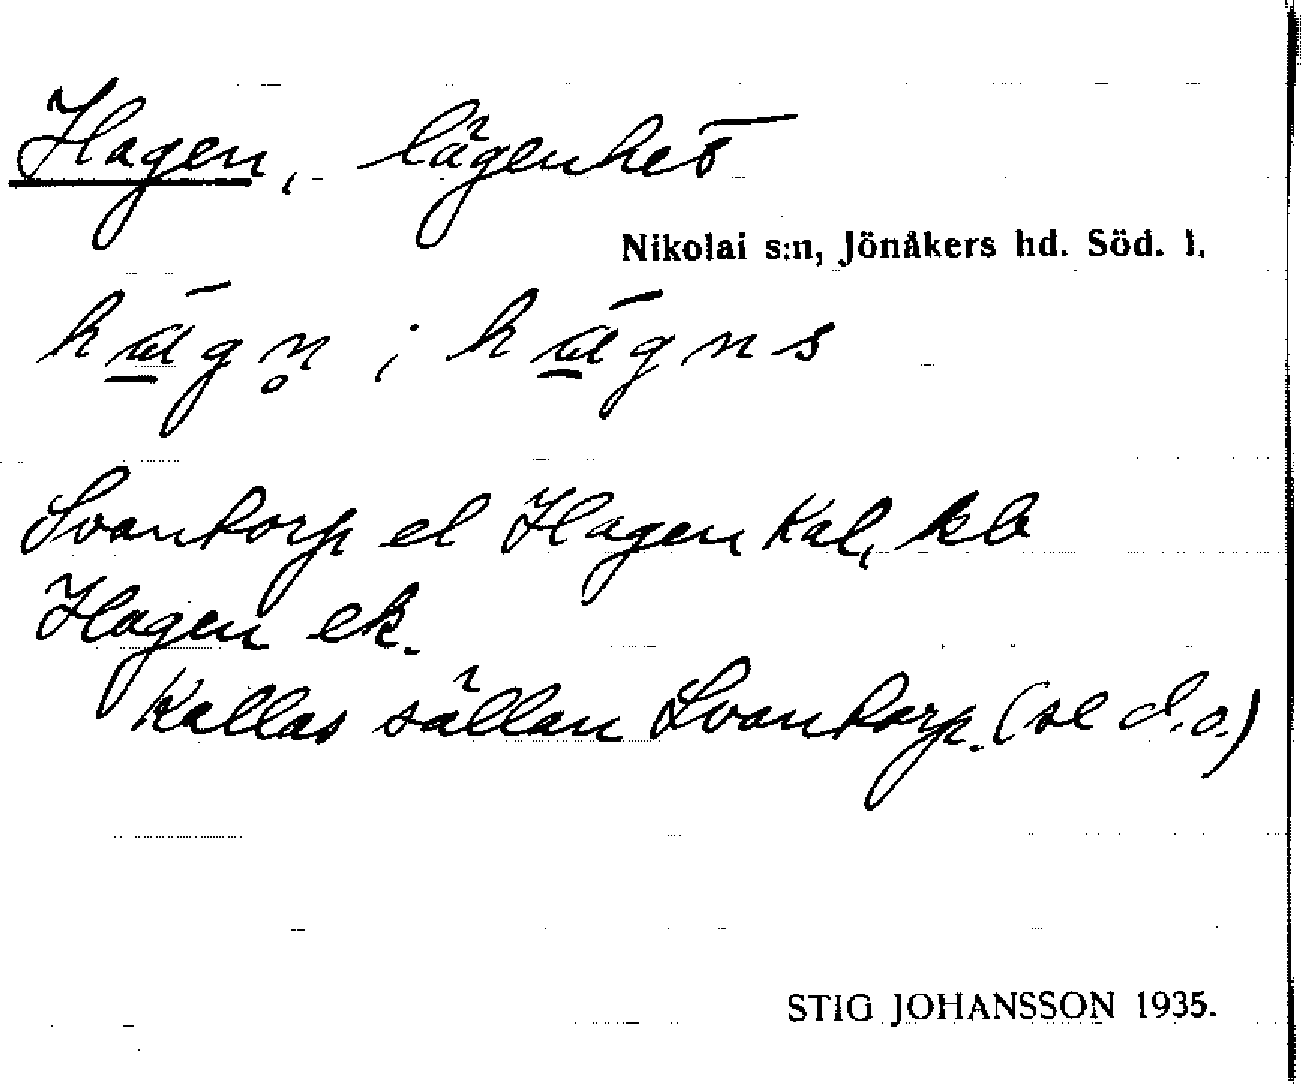 Hagen, lägenhet
Nikolai s:n, Jönåkers hd. Söd. l.
hāgn̥ ; hāgns
Svantorp el Hagen Kal, kb
Hagen ek.
Kallas sällan Svantorp. (se d.o.)
STIG JOHANSSON 1935.